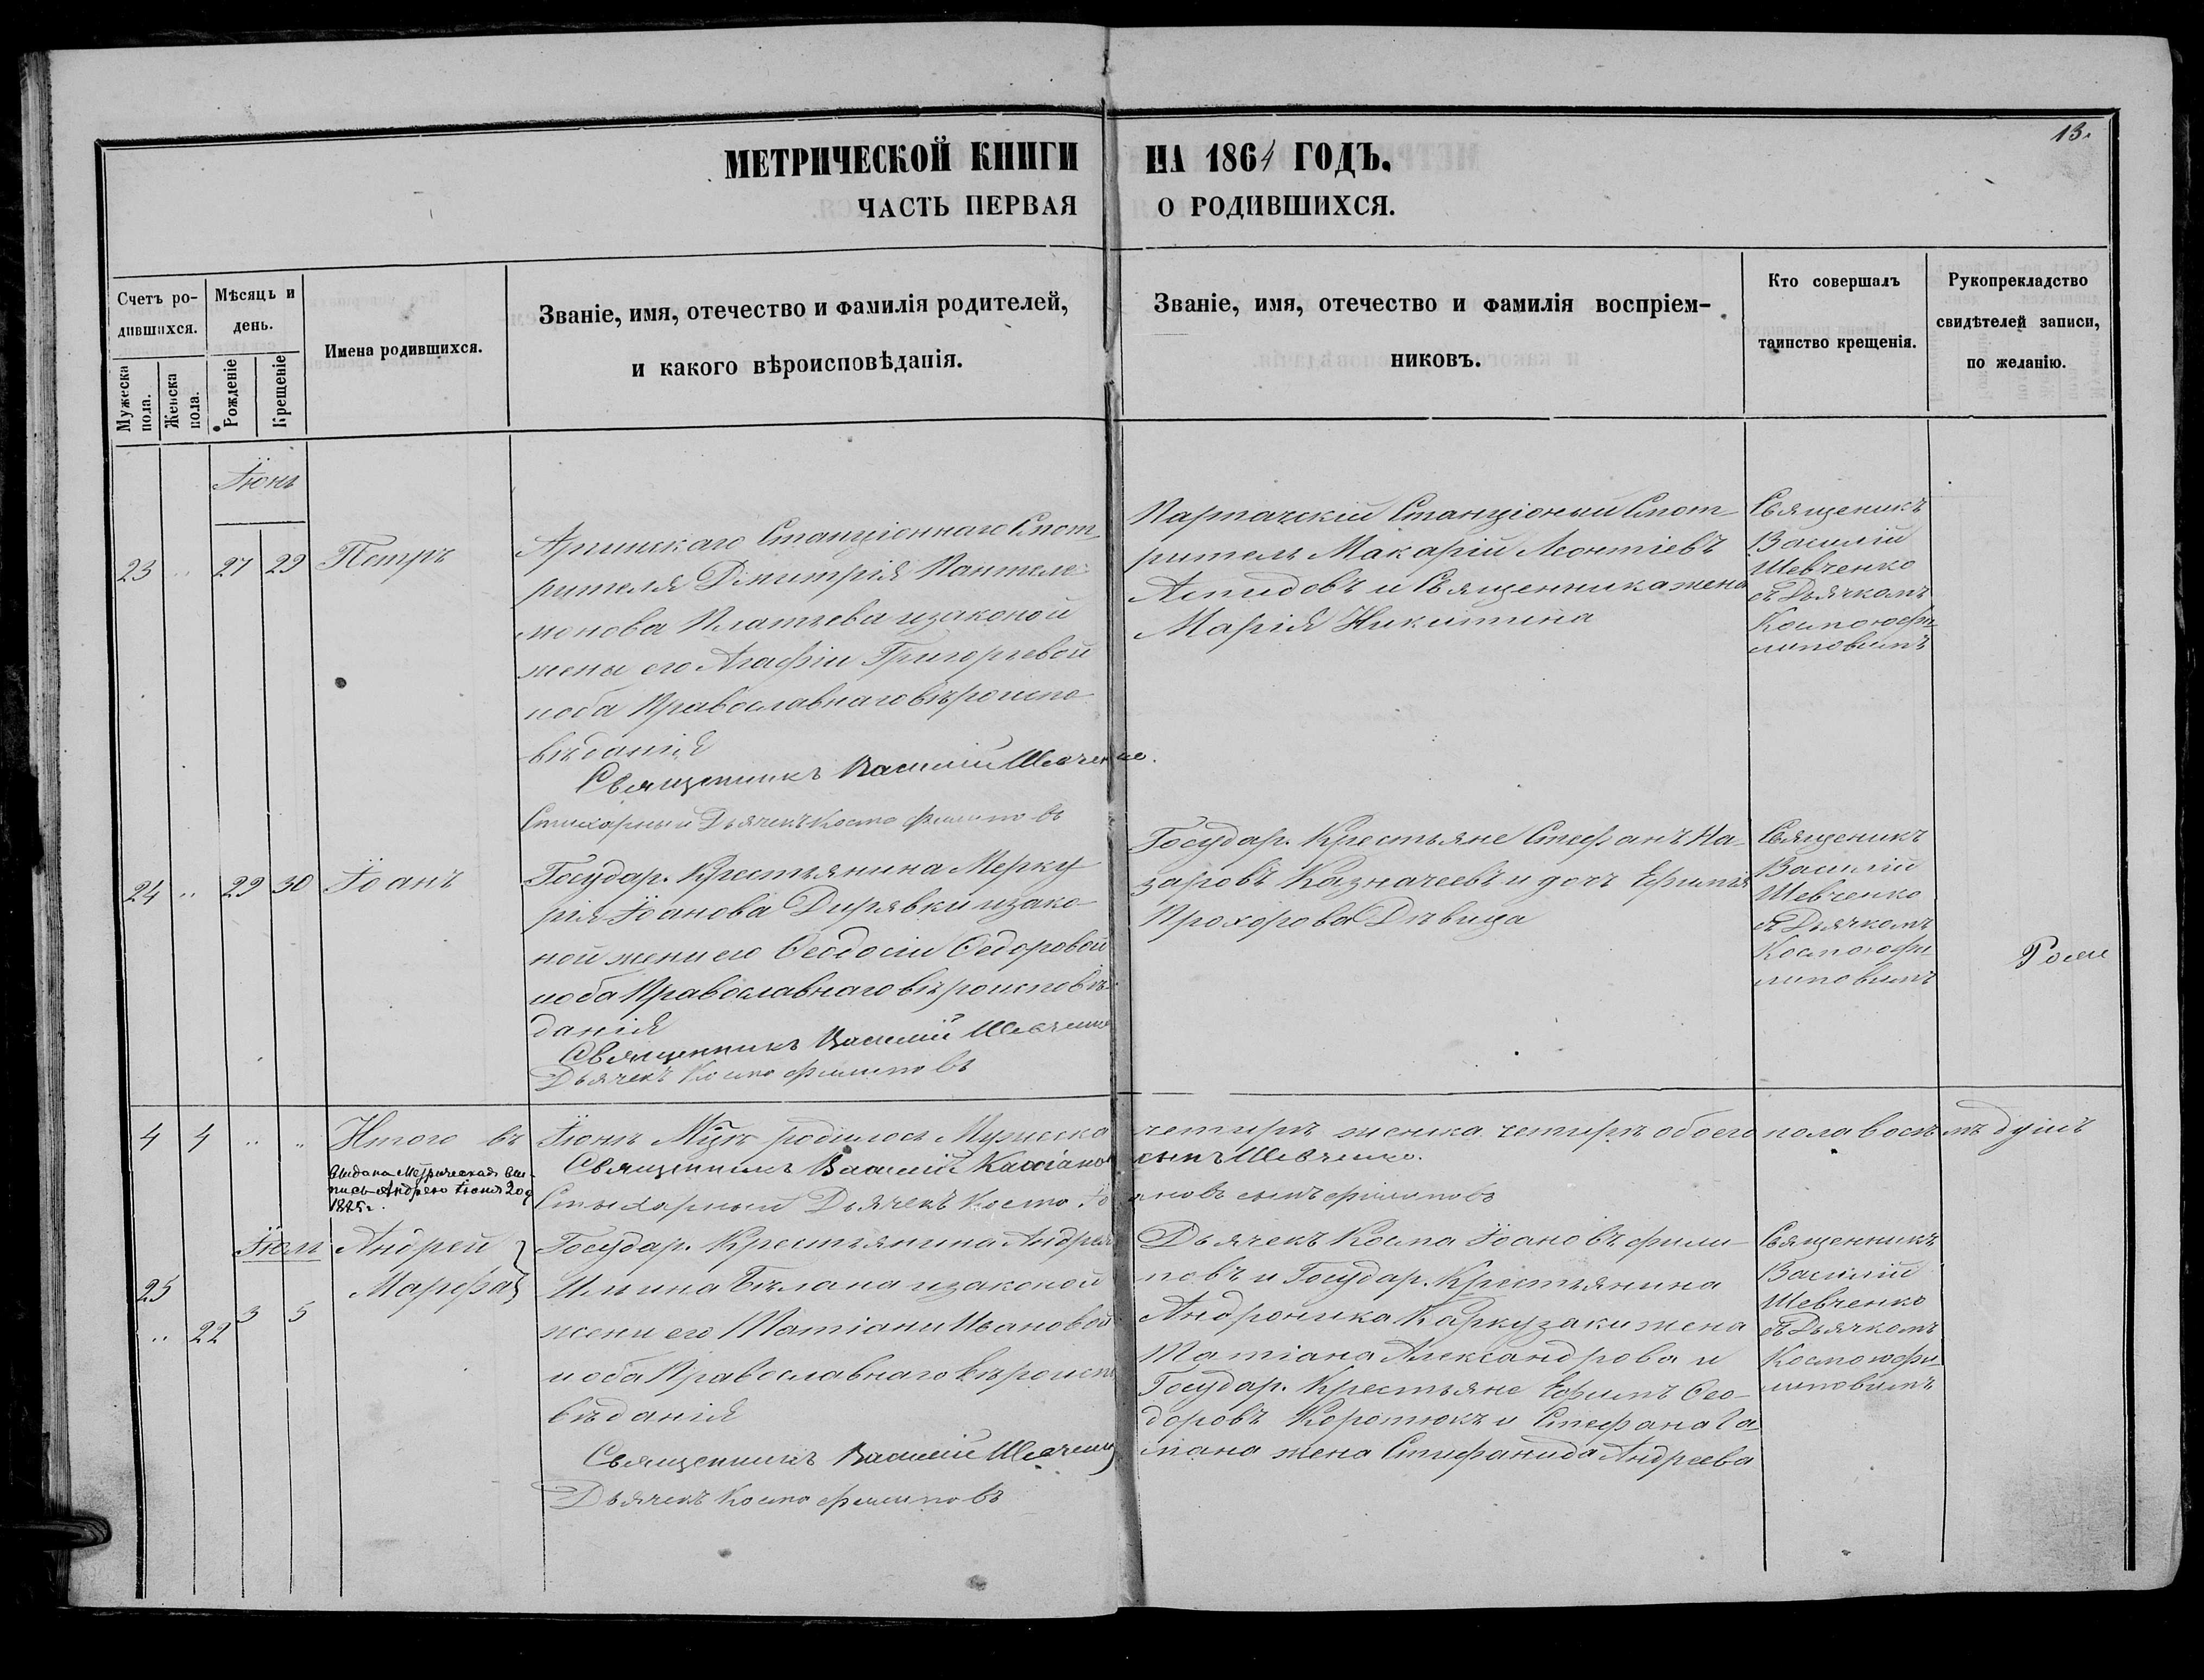 13.
МЕТРИЧЕСКОЙ КНИГИ НА 1864 ГОДЪ.
ЧАСТЬ ПЕРВАЯ О РОДИВШИХСЯ.
Счетъ ро-
дившихся.
Мужеска
пола.
Женска
пола.
Мѣсяцъ и
день.
Рожденіе
Крещеніе
Имена родившихся.
Званіе, имя, отечество и фамилія родителей,
и какого вѣроисповѣданія.
Званіе, имя, отечество и фамилія воспріем-
никовъ.
Кто совершалъ
таинство крещенія.
Рукоприкладство
свидѣтелей записи,
по желанію.
Іюнь
23 .. 27 29 Петръ
Станціоннаго Смот
рителя Дмитрія Пантеле
монова Платьева изаконой
жены его Агафіи Григорьевой
иоба Православнаго вѣроиспо
вѣданія
Священникъ Василій Шевченко.
Стихарный Дьячекъ Косма Филиповъ
Станціоный Смот
ритель Макарій Леонтіевъ
и Священника жена
Марія Никитина
Священикъ
Василій
Шевченко
съ Дьячкомъ
Космою Фи
липовымъ
24 .. 29 30 Іоанъ
Государ. Крестьянина Мерку
рія Іоанова Дирявки изако
ной жени его Феодосіи Федоровой
иоба Православнаго вѣроисповѣ
данія
Священникъ Василій Шевченко
Дьячекъ Косма Филиповъ
Государ. Крестьяне Стефанъ На-
заровъ Казначеевъ и дочь Ефимія
Прохорова Дѣвица
Священикъ
Василій
Шевченко
съ Дьячкомъ
Космою Фи
липовымъ
4 4 .. .. Итого въ Іюнѣ Мцѣ родилось Мужеска четирѣ женска четирѣ обоего пола восѣмъ душъ
Священникъ Василій Кассіановъ сынъ Шевченко.
Стыхарный Дьячекъ Косма Іоановъ сынъ Филиповъ
Выдана Метрическая вы-
пись Андрею Іюня 20 д
1885 г.
Іюль
25
.. 22 3 5
Андрей
Марфа
Государ. Крестьянина Андрея
Ильина Бѣлана изаконой
жени его Татіани Ивановой
иоба Православнаго вѣроиспо
вѣданія
Священникъ Василій Шевченко
Дьячекъ Косма Филиповъ
Дьячекъ Косма Іоановъ Фили
повъ и Государ. Крестьянина
Андроника Каркузаки жена
Татіана Александрова и
Государ. Крестьяне Ефимъ Фео-
доровъ Коротюкъ и Стефана Га
мана жена Стефанида Андреева
Священникъ
Василій
Шевченко
съ Дьячкомъ
Космою Фи
липовымъ